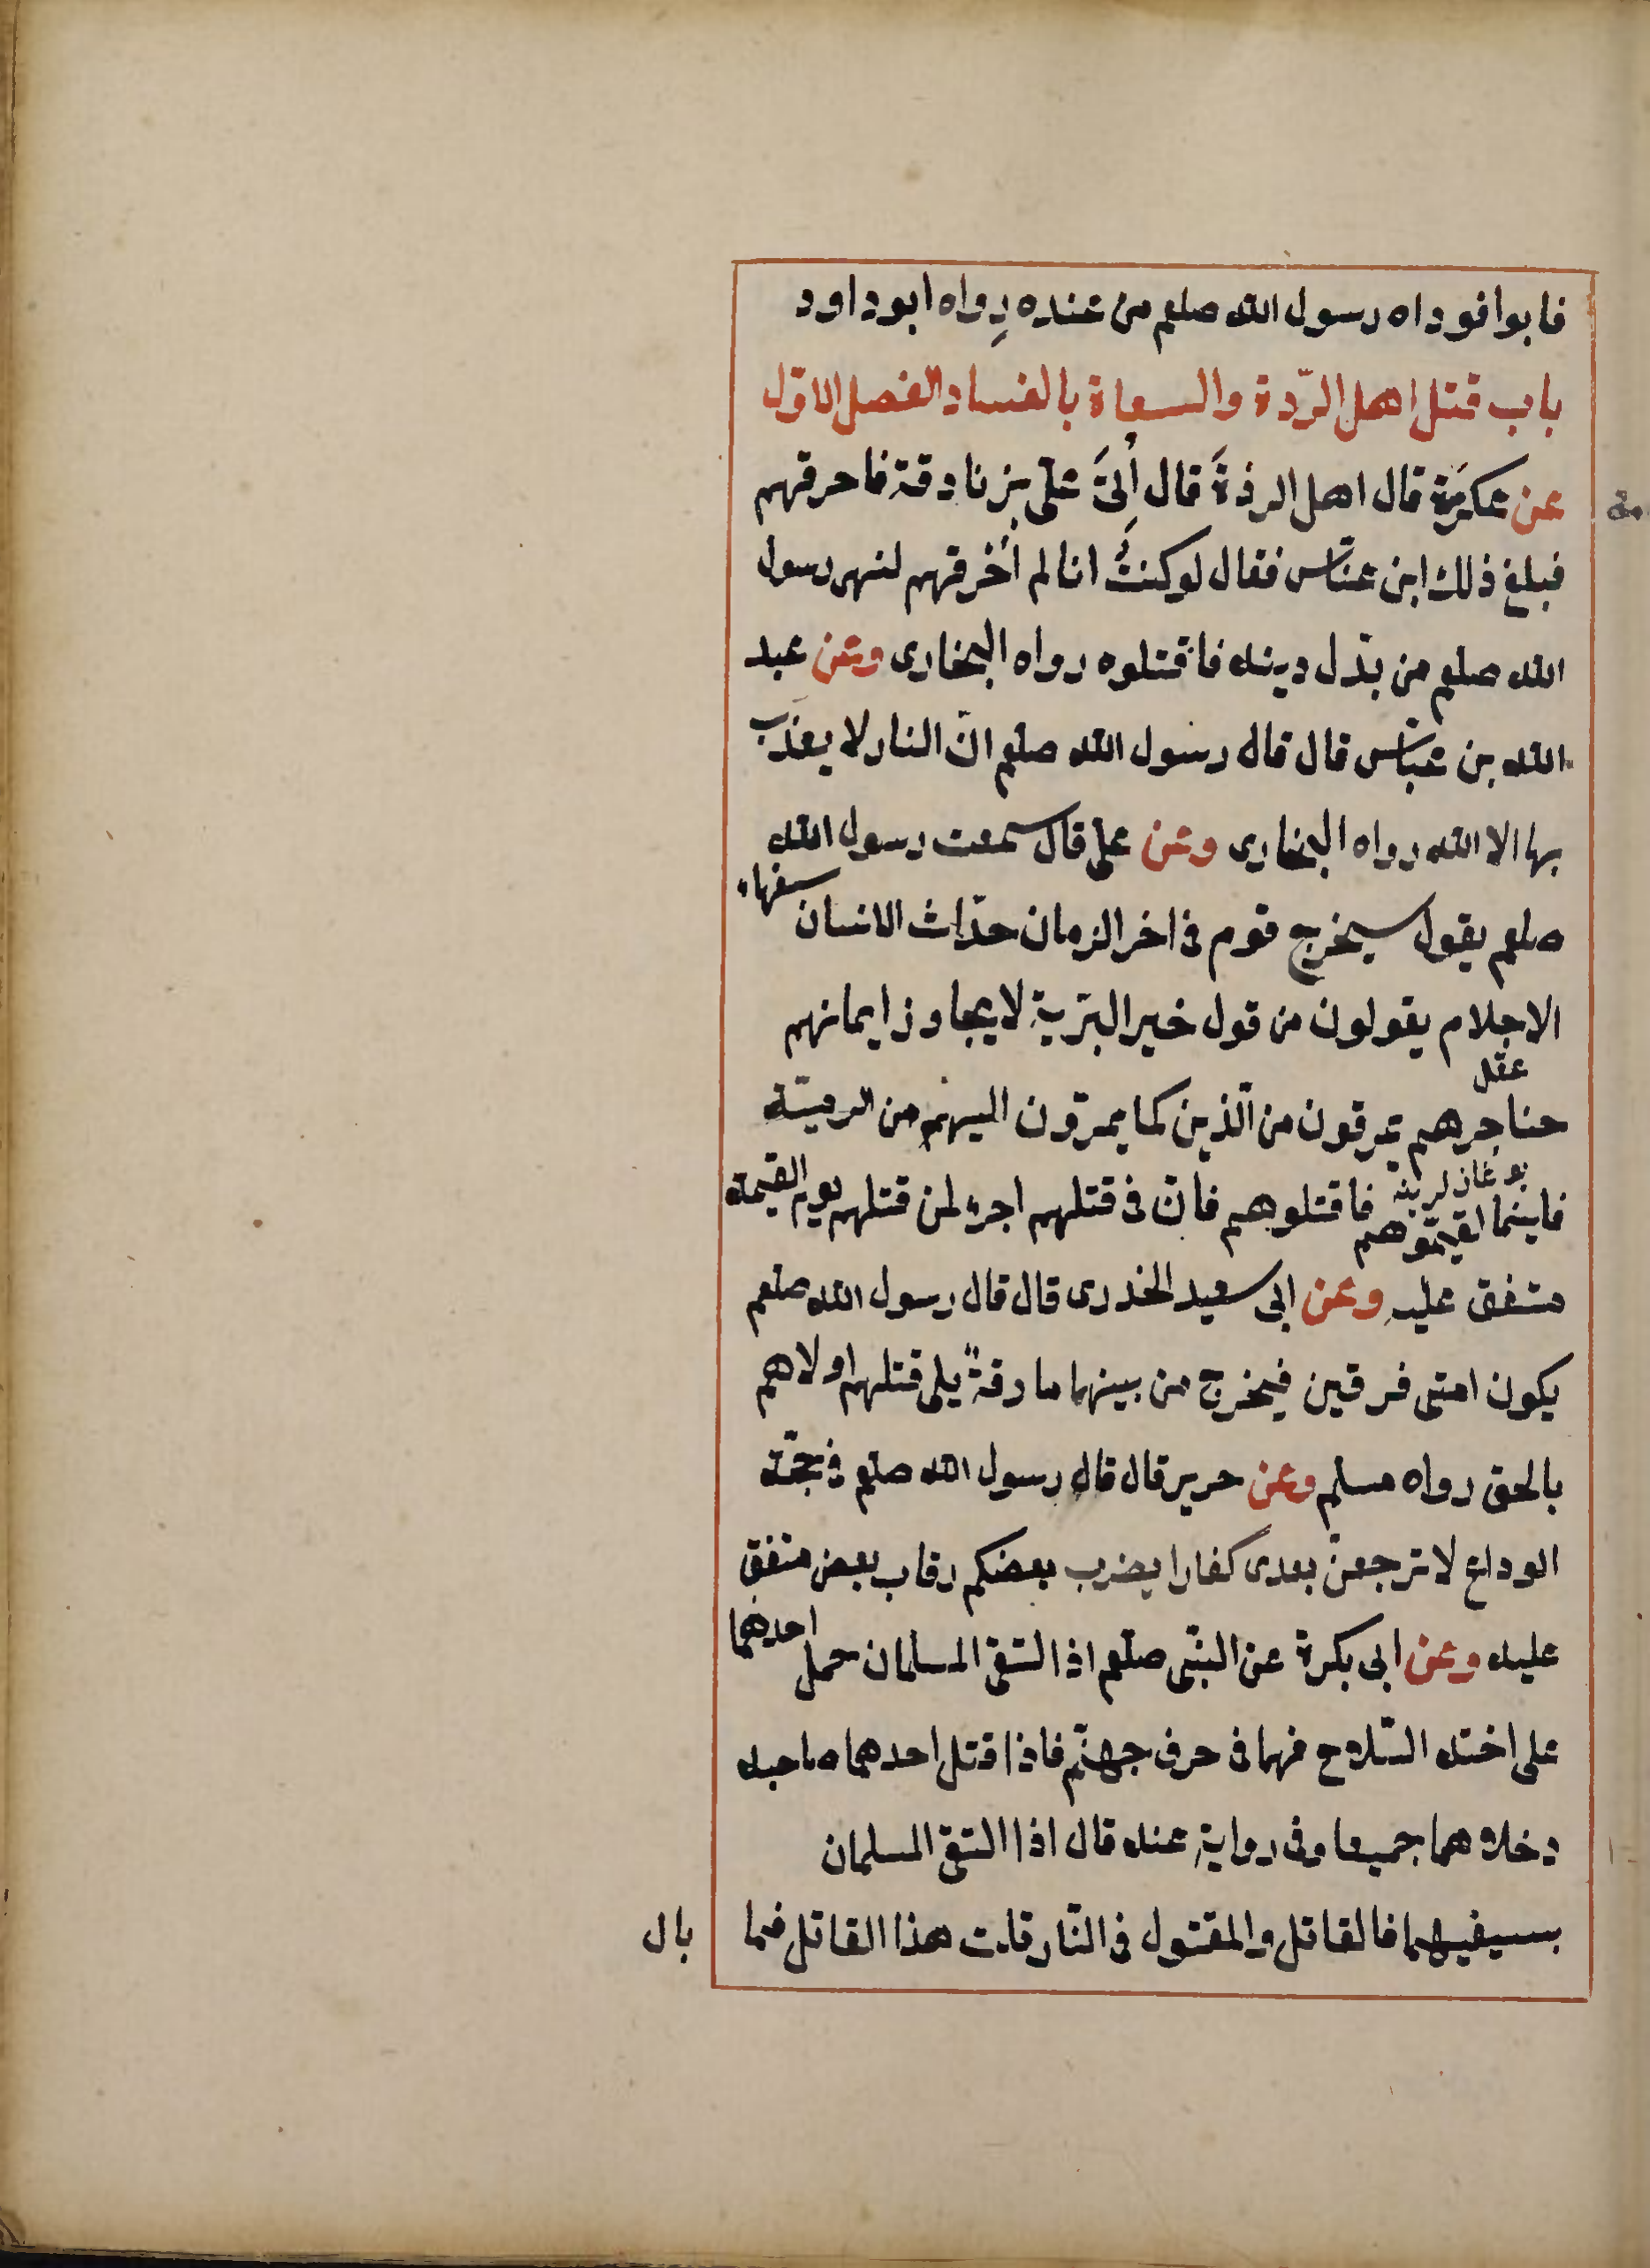 فابوا فوداه رسول الله صلعم من عنده رواه ابو داود
باب قتل اهل الردّة والسعاة بالفساد الفصل الاوّل
عن عكرمة قال اهل الرذة قال أُتِىَ علىّ بزنادقة فاحرقهم
فبلغ ذلك ابن عباس فقال لو كنتُ انا لم أحرقهم لنهى رسول
الله صلعم من بدّل دينه فاقتلوه رواه البخارى وعن عبد
الله بن عبّاس قال قال رسول الله صلعم انّ النار لا يعذّب
بها الا الله رواه البخارى وعن على قال سمعت رسول الله
صلعم يقول سيخرج قوم فى اخر الزمان حدّاث الانسان سفهاء
الاحلام يقولون من قول خير البريّة لا يجاوز ايمانهم
عقل
حناجرهم يمرقون من الّذين كما يمرقون السهم من الرميّة
فاينما لقيتموهم فاقتلوهم فانّ فى قتلهم اجره لمن قتلهم يوم القيمة
متفق عليه وعن ابى سعيد الخدرى قال قال رسول الله صلعم
يكون امتى فرقين فيخرج من بينهما مارقةٌ يلى قتلهم اولاهم
بالحق رواه مسلم وعن حرير قال قال رسول الله صلعم فى حجّة
الوداع لا ترجعنّ بعدى كفارا يضرب بعضكم رقاب بعض متفق
عليه وعن ابى بكرة عن النبّى صلعم اذا التقى المسلمان حمل احدهما
على اخته السّلاح فهما فى حرف جهنّم فاذا قتل احدهما صاحبه
دخلاه هما جميعا وفى رواية عنه قال اذا التقى المسلمان
بسيفيهما فالقاتل والمقتول فى النّار قلت هذا القاتل فما
بال